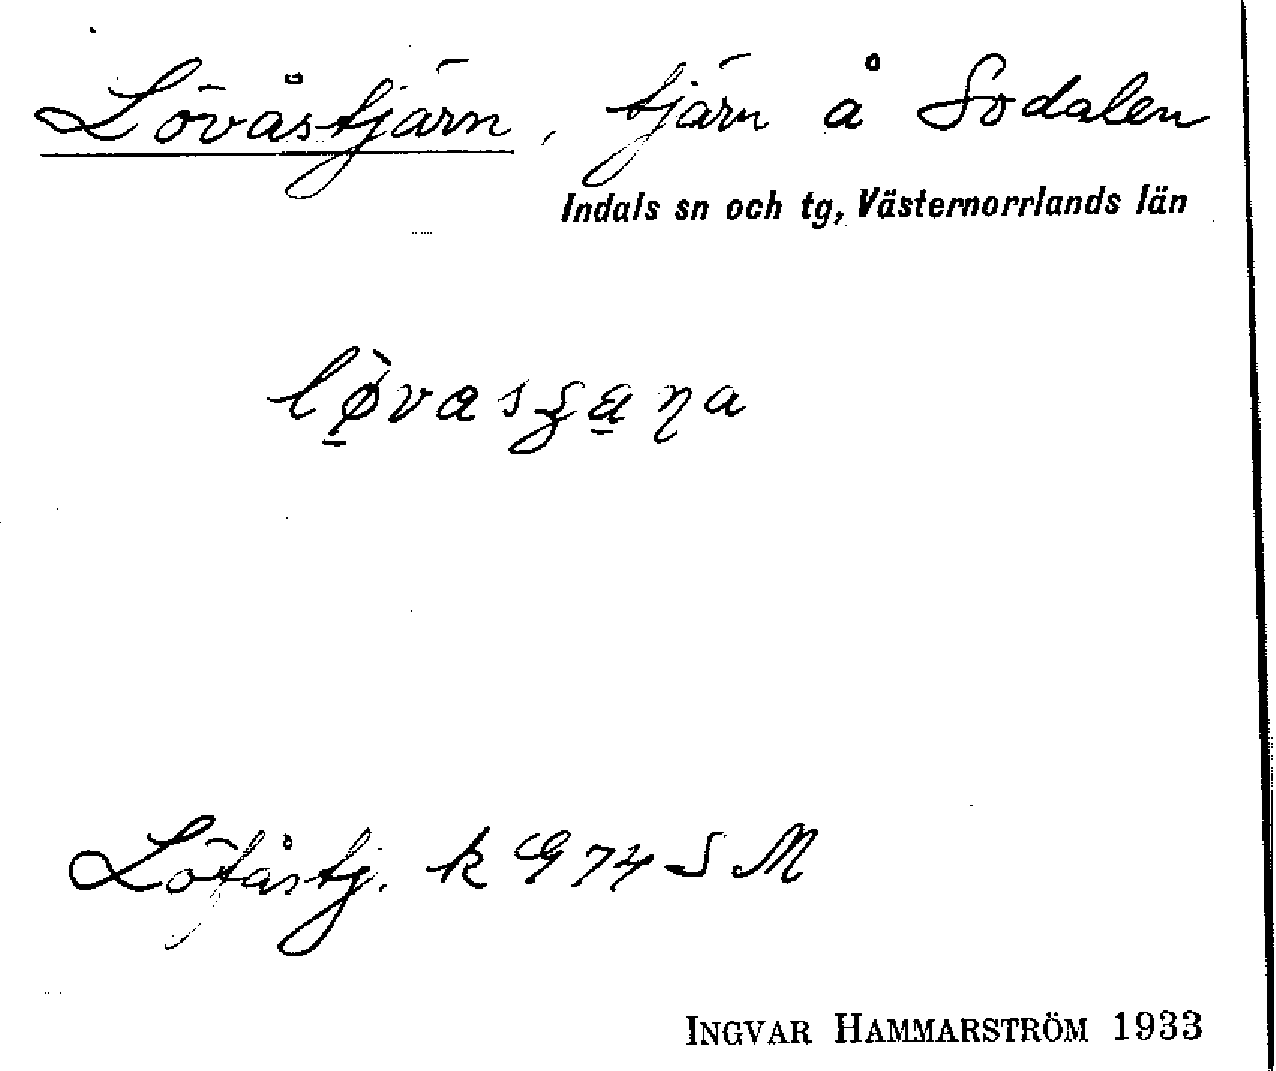 Lövåstjärn, tjärn å Sodalen
Indals sn och tg, Västernorrlands län
Löfåstj. k G 74 S M
INGVAR HAMMARSTRÖM 1933